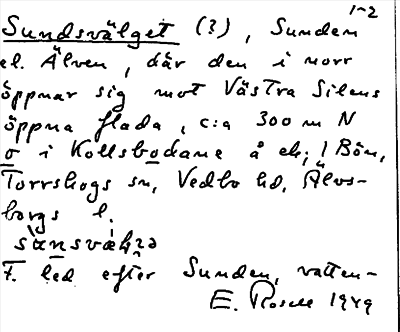 1-2
Sundsvälget (?), Sunden
el. Älven, där den i norr
öppnar sig mot Västra Silens
öppna flada, c:a 300 m N
o i Kollsbodane å ek; 1 Bön,
Torrskogs sn, Vedbo hd, Älvs-
borgs l.
F. led efter Sunden, vatten-
E. Rosell 1949